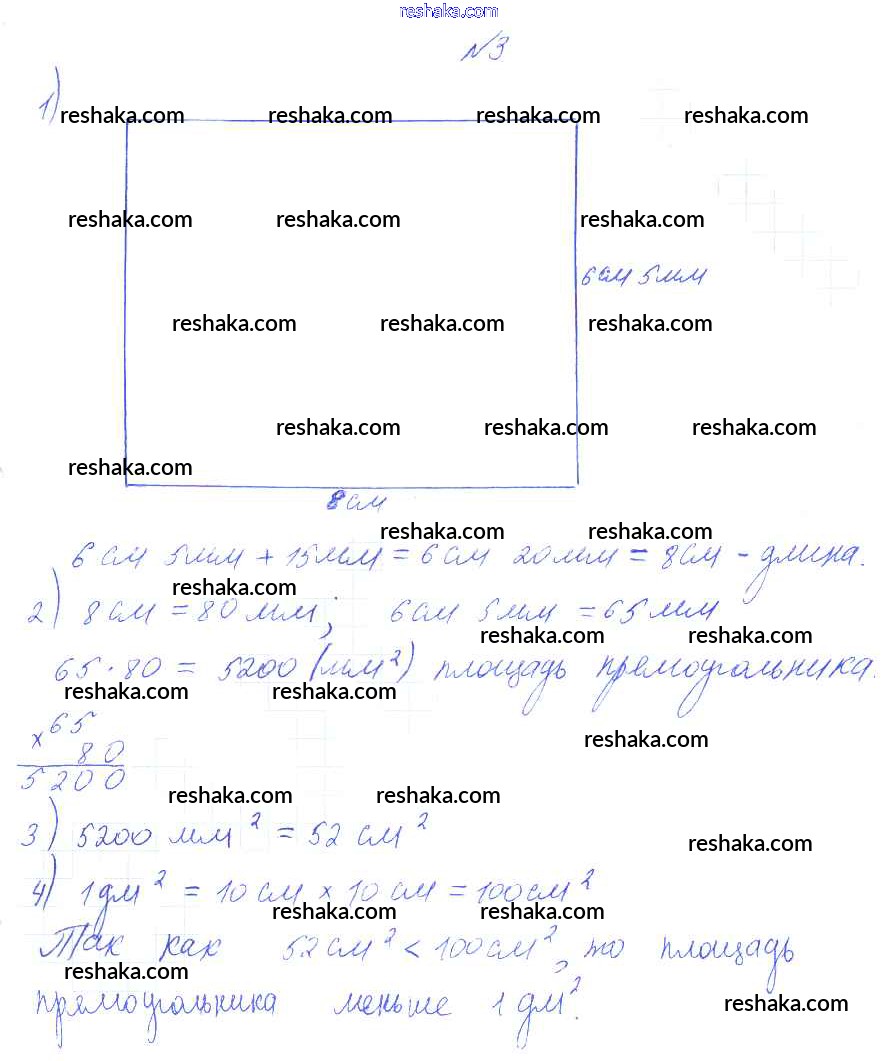 reshaka.com
№3
1)
reshaka.com reshaka.com reshaka.com reshaka.com
reshaka.com reshaka.com reshaka.com
6 см 5 мм
reshaka.com reshaka.com reshaka.com
reshaka.com reshaka.com reshaka.com
reshaka.com
8 см
reshaka.com reshaka.com
6 см 5 мм + 15 мм = 6 см 20 мм = 8 см - длина.
reshaka.com
2) 8 см = 80 мм; 6 см 5 мм = 65 мм
reshaka.com reshaka.com
65 · 80 = 5200 (мм²) площадь прямоугольника.
reshaka.com reshaka.com
x 65
reshaka.com
80
5200
reshaka.com reshaka.com
3) 5200 мм² = 52 см²
reshaka.com
4) 1 дм² = 10 см x 10 см = 100 см²
reshaka.com reshaka.com
Так как 52 см² < 100 см², то площадь
reshaka.com
прямоугольника меньше 1 дм².
reshaka.com